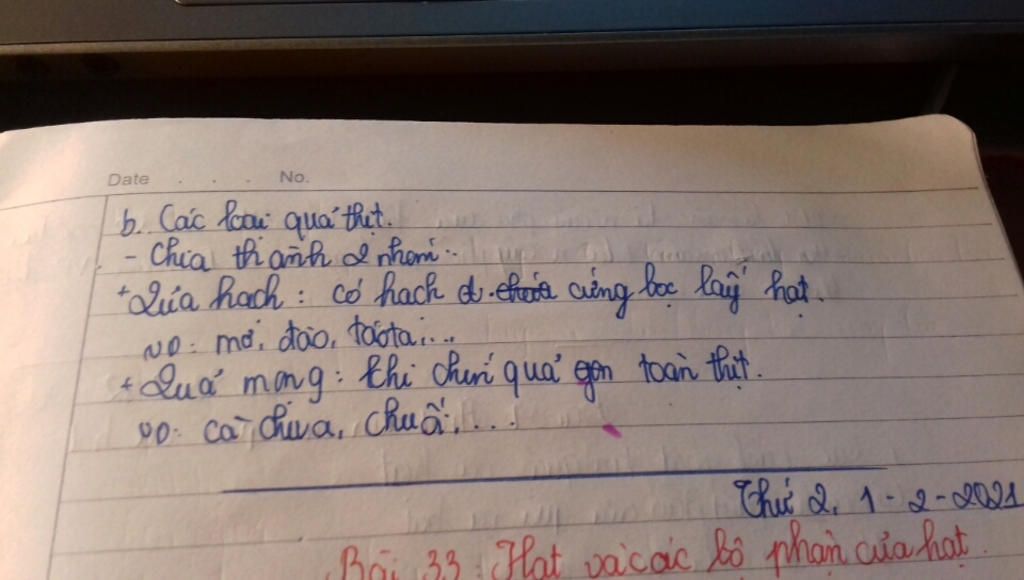 Date . . . No.
b. Các loại quả thịt.
- Chia thành 2 nhóm:
+ Quả hạch: có hạch cứng bọc lấy hạt.
VD: mơ, đào, táo ta,...
+ Quả mọng: khi chín quả gồm toàn thịt.
VD: cà chua, chuối,...
Thứ 2, 1-2-2021
Bài 33: Hạt và các bộ phận của hạt.